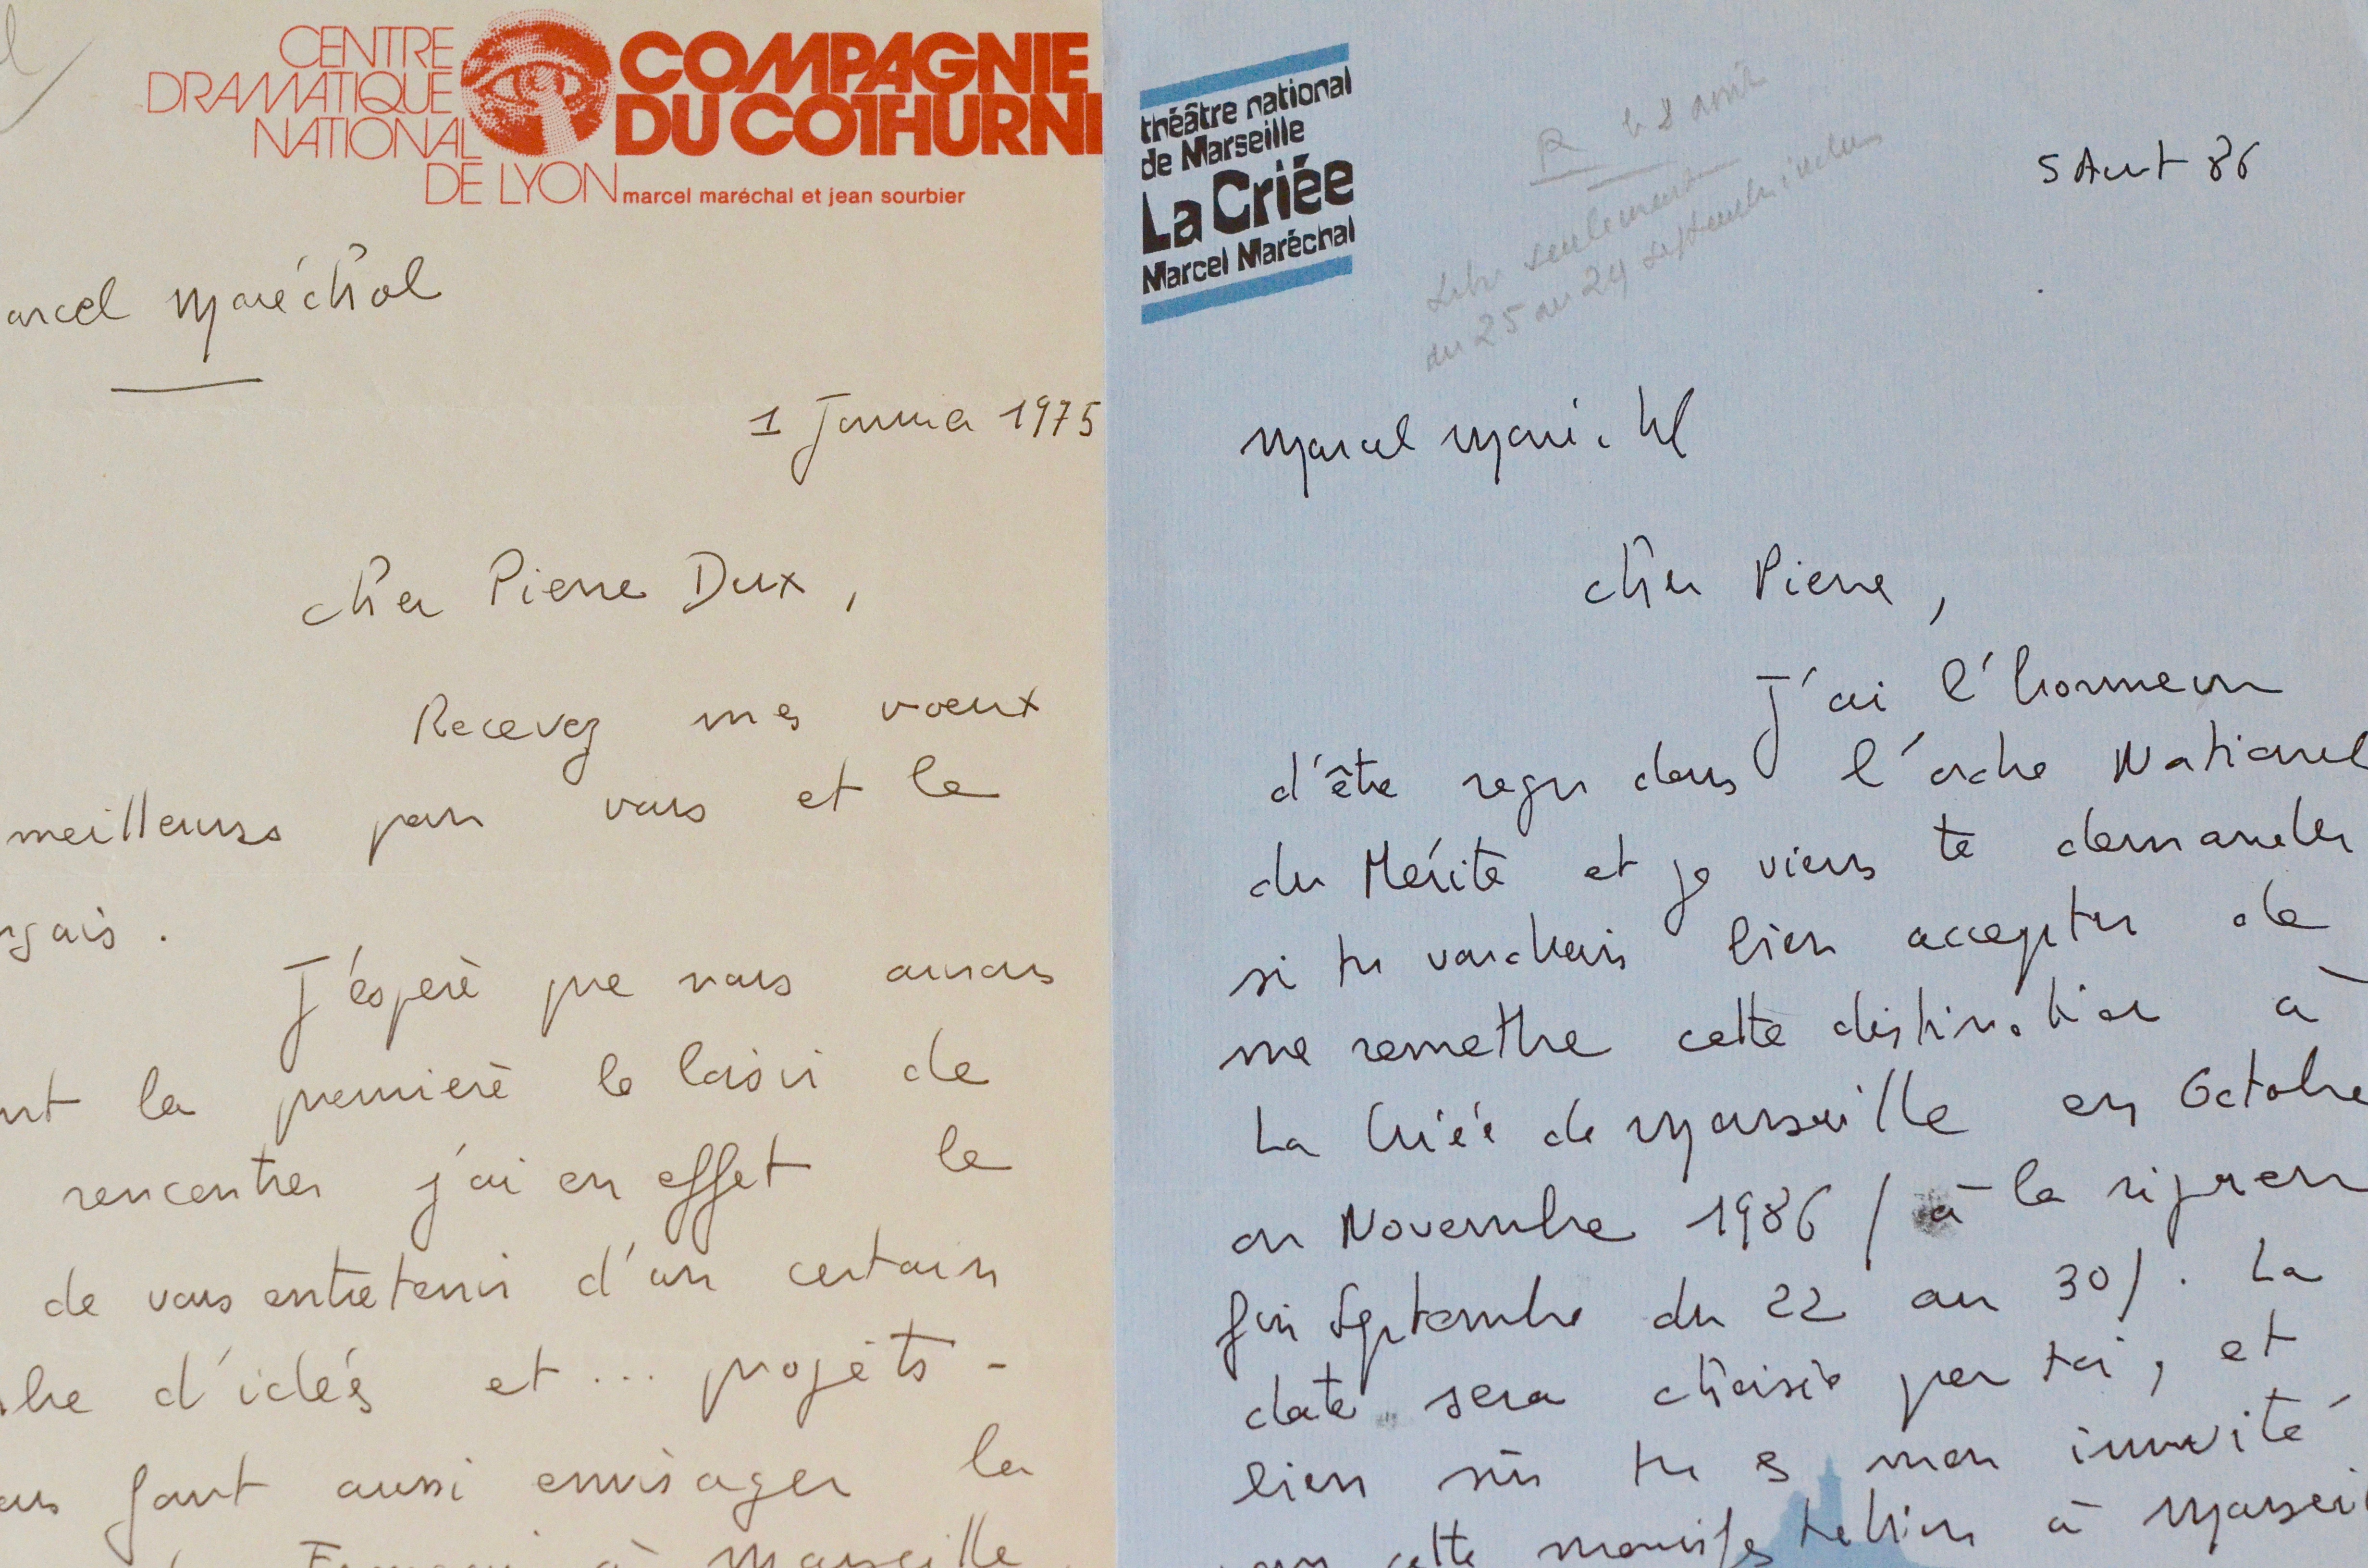 CENTRE
DRAMATIQUE
NATIONAL
DE LYON
COMPAGNIE
DU COTHURN
marcel maréchal et jean sourbier
arcel Maréchal
1 Janvier 1975
cher Pierre Dux,
Recevez mes voeux
meilleurs pour vous et le
çais.
J'espère que nous aurons
la première le loisir de
rencontrer j'ai en effet le
de vous entretenir d'un certain
bre d'idées et... projets -
faut aussi envisager la
à Marseille
théâtre national
de Marseille
La Criée
Marcel Maréchal
R le 8 août
Libre seulement
du 25 au 29 septembre inclus
5 Aout 86
Marcel Maréchal
cher Pierre,
J'ai l'honneur
d'être reçu dans l'ordre National
du Mérite et je viens te demander
si tu voudrais bien accepter de
me remettre cette distinction à
La Criée de Marseille en Octobre
ou Novembre 1986 / à la rigueur
fin Septembre du 22 au 30/. La
date sera choisie par toi, et
bien sûr tu es mon invité
cette manifestation à Marseil